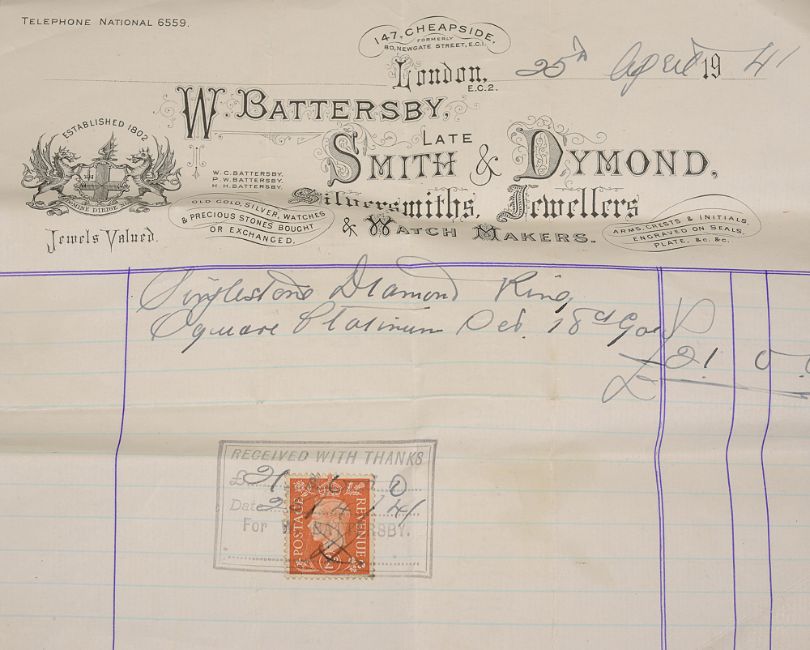 TELEPHONE NATIONAL 6559.
147, CHEAPSIDE,
FORMERLY
80, NEWGATE STREET, E.C.1.
London, 25th April 1941
E.C.2.
W. BATTERSBY,
ESTABLISHED 1802
LATE
SMITH & DYMOND,
W. C. BATTERSBY.
P. W. BATTERSBY.
H. H. BATTERSBY.
DOMINE DIRIGE NOS
Silversmiths, Jewellers
& WATCH MAKERS.
OLD GOLD, SILVER, WATCHES
& PRECIOUS STONES BOUGHT
OR EXCHANGED.
ARMS, CRESTS & INITIALS,
ENGRAVED ON SEALS,
PLATE, &c. &c.
Jewels Valued.
Singlestone Diamond Ring
Square Platinum Oct. 18ct Gold
£21 0 0
RECEIVED WITH THANKS
£ 21 0
Date 4/41
For W. BATTERSBY.
POSTAGE REVENUE
2D